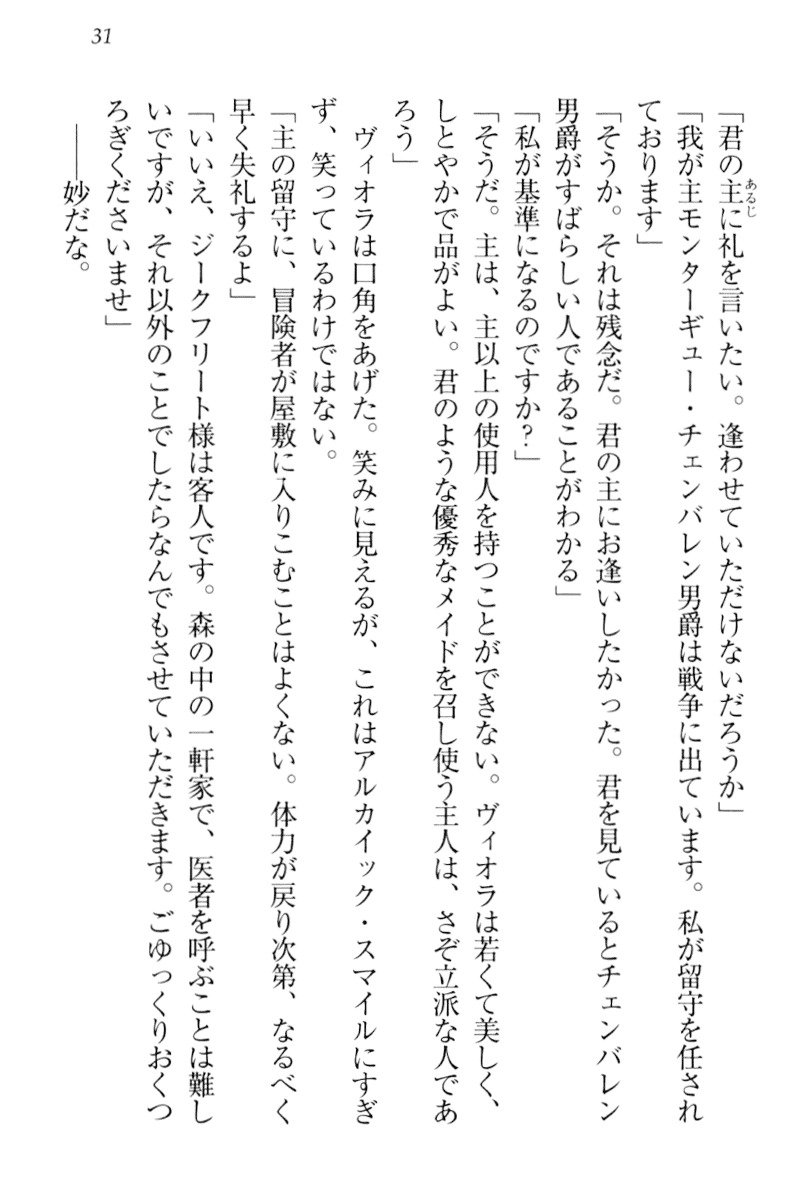 31
「君の主に礼を言いたい。逢わせていただけないだろうか」
あるじ
「我が主モンターギュー・チェンバレン男爵は戦争に出ています。私が留守を任され
ております」
「そうか。それは残念だ。君の主にお逢いしたかった。君を見ているとチェンバレン
男爵がすばらしい人であることがわかる」
「私が基準になるのですか?」
「そうだ。主は、主以上の使用人を持つことができない。ヴィオラは若くて美しく、
しとやかで品がよい。君のような優秀なメイドを召し使う主人は、さぞ立派な人であ
ろう」
ヴィオラは口角をあげた。笑みに見えるが、これはアルカイック・スマイルにすぎ
ず、笑っているわけではない。
「主の留守に、冒険者が屋敷に入りこむことはよくない。体力が戻り次第、なるべく
早く失礼するよ」
「いいえ、ジークフリート様は客人です。森の中の一軒家で、医者を呼ぶことは難し
いですが、それ以外のことでしたらなんでもさせていただきます。ごゆっくりおくつ
ろぎくださいませ」
――妙だな。